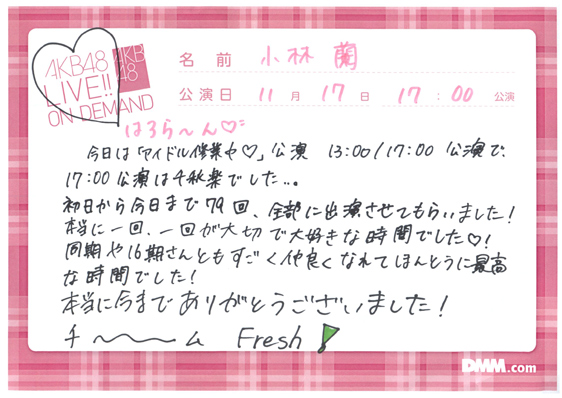 AKB48
LIVE!!
ON DEMAND
AKB
48
名前 小林 蘭
公演日 11月17日 17:00 公演
はろら〜ん♡
今日は「アイドル修業中♡」公演 13:00/17:00 公演で、
17:00公演は千秋楽でした...。
初日から今日まで79回、全部に出演させてもらいました!
本当に一回、一回が大切で大好きな時間でした♡!
同期や16期さんともすごく仲良くなれてほんとうに最高
な時間でした!
本当に今までありがとうございました!
チ〜〜〜ム Fresh!
DMM.com